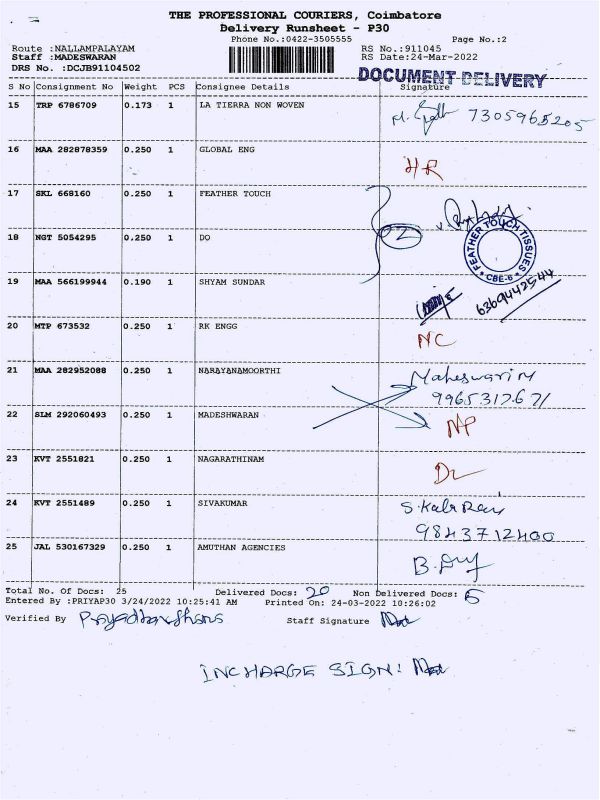 THE PROFESSIONAL COURIERS, Coimbatore
Delivery Runsheet - P30
Phone No.:0422-3505555 Page No.:2
Route :NALLAMPALAYAM RS No.:911045
Staff :MADESWARAN RS Date:24-Mar-2022
DRS No. :DCJB91104502
DOCUMENT DELIVERY
S No Consignment No Weight PCS Consignee Details Signature
15 TRP 6786709 0.173 1 LA TIERRA NON WOVEN 7305965205
16 MAA 282878359 0.250 1 GLOBAL ENG HR
17 SKL 668160 0.250 1 FEATHER TOUCH
2
FEATHER TOUCH TISSUES
* CBE-6 *
18 NGT 5054295 0.250 1 DO
19 MAA 566199944 0.190 1 SHYAM SUNDAR 6369442544
20 MTP 673532 0.250 1 RK ENGG NC
21 MAA 282952088 0.250 1 NARAYANAMOORTHI Maheswari M
9965312671
22 SLM 292060493 0.250 1 MADESHWARAN NP
23 KVT 2551821 0.250 1 NAGARATHINAM DL
24 KVT 2551489 0.250 1 SIVAKUMAR
9843712400
25 JAL 530167329 0.250 1 AMUTHAN AGENCIES
Total No. Of Docs: 25 Delivered Docs: 20 Non Delivered Docs: 5
Entered By :PRIYAP30 3/24/2022 10:25:41 AM Printed On: 24-03-2022 10:26:02
Verified By Priyadharshana Staff Signature
INCHARGE SIGN: